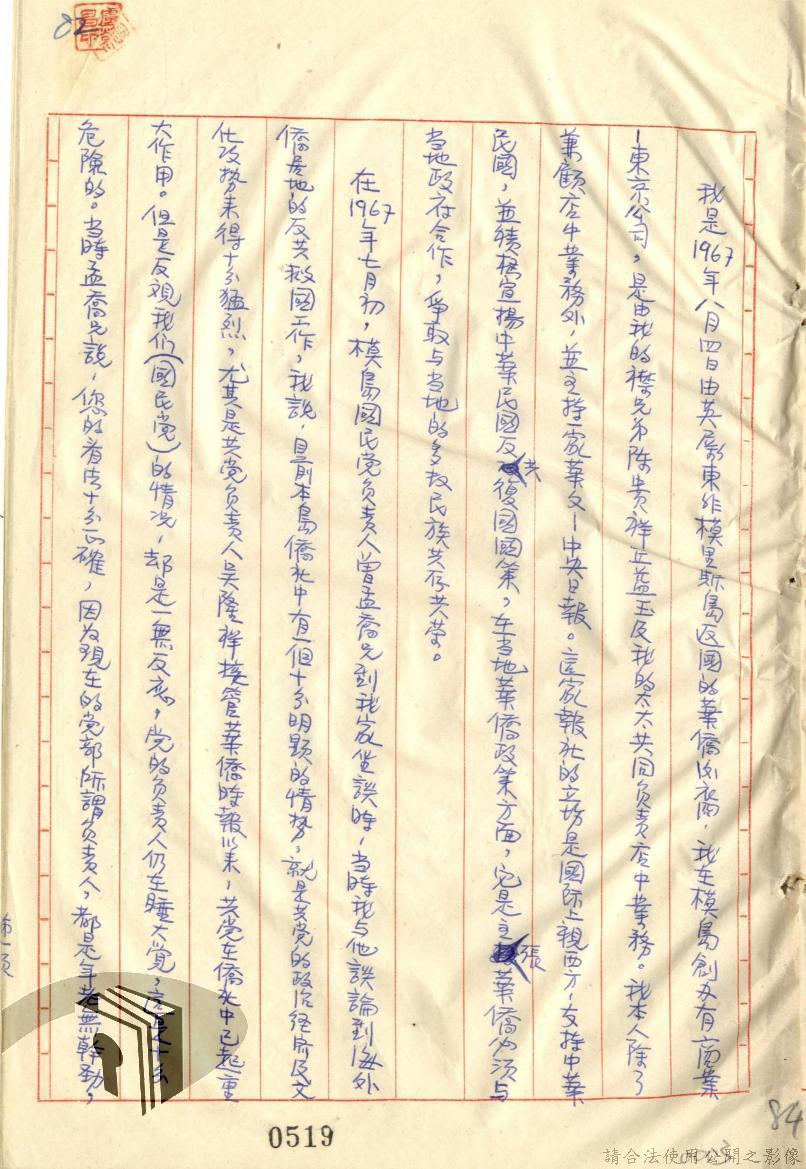 82
我是1967年八月四日由英屬東非模里斯島返國的華僑，我在模島創办有商業
－東京公司，是由我的襟兄弟陈貴祥丘益玉及我的太太共同负责店中業務。我本人除了
兼顧店中業務外，並主持一家華文－中央日報。這家報社的立场是國际上親西方，支持中華
民國，並積極宣揚中華民國反共復國國策，在当地華僑政策方面，它是主張華僑必须与
当地政府合作，爭取与当地的多数民族共存共荣。
在1967年七月初，模島國民党负责人曾孟喬兄到我家坐談時，当時我与他談論到海外
僑居地的反共救國工作，我說，目前本島僑社中有一個十分明顯的情势，就是共党的政治经济及文
化攻势来得十分猛烈，尤其是共党负责人吴隆祥接管華僑時報以来，共党在僑社中已起重
大作用。但是反觀我们（國民党）的情况，却是一無反应，党的负责人仍在睡大觉，這是十分
危險的。当時孟喬兄說，您的看法十分正確，因为現在的党部所謂负责人，都是年老無幹劲，
第一頁
0519
84
請合法使用公開之影像